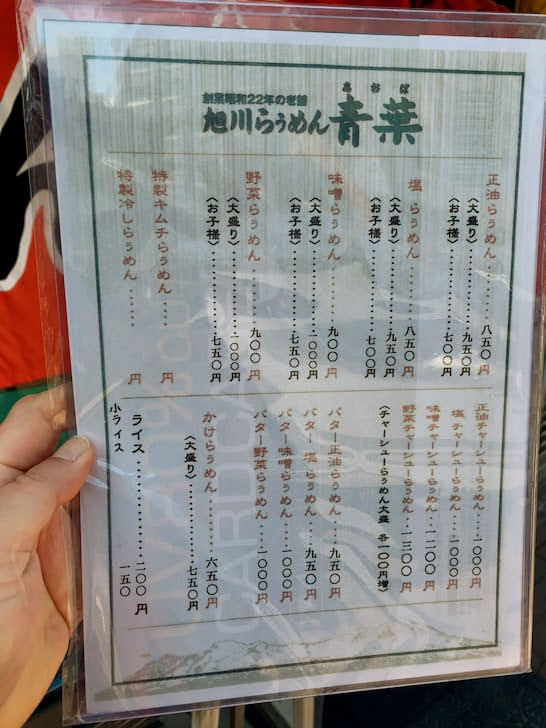 創業昭和22年の老舗
あおば
旭川らぅめん青葉
正油らぅめん………八五〇円
〈大盛り〉………九五〇円
〈お子様〉………七〇〇円
塩らぅめん………八五〇円
〈大盛り〉………九五〇円
〈お子様〉………七〇〇円
味噌らぅめん………九〇〇円
〈大盛り〉………一〇〇〇円
〈お子様〉………七五〇円
野菜らぅめん………九〇〇円
〈大盛り〉………一〇〇〇円
〈お子様〉………七五〇円
特製キムチらぅめん……円
特製冷しらぅめん……円
正油チャーシューらぅめん…一〇〇〇円
塩チャーシューらぅめん…一〇〇〇円
味噌チャーシューらぅめん…一二〇〇円
野菜チャーシューらぅめん…一三〇〇円
〈チャーシューらぅめん大盛 各一〇〇円増〉
バター正油らぅめん…九五〇円
バター塩らぅめん…九五〇円
バター味噌らぅめん…一〇〇〇円
バター野菜らぅめん…一〇〇〇円
かけらぅめん………六五〇円
〈大盛り〉………七五〇円
ライス………二〇〇円
小ライス 一五〇